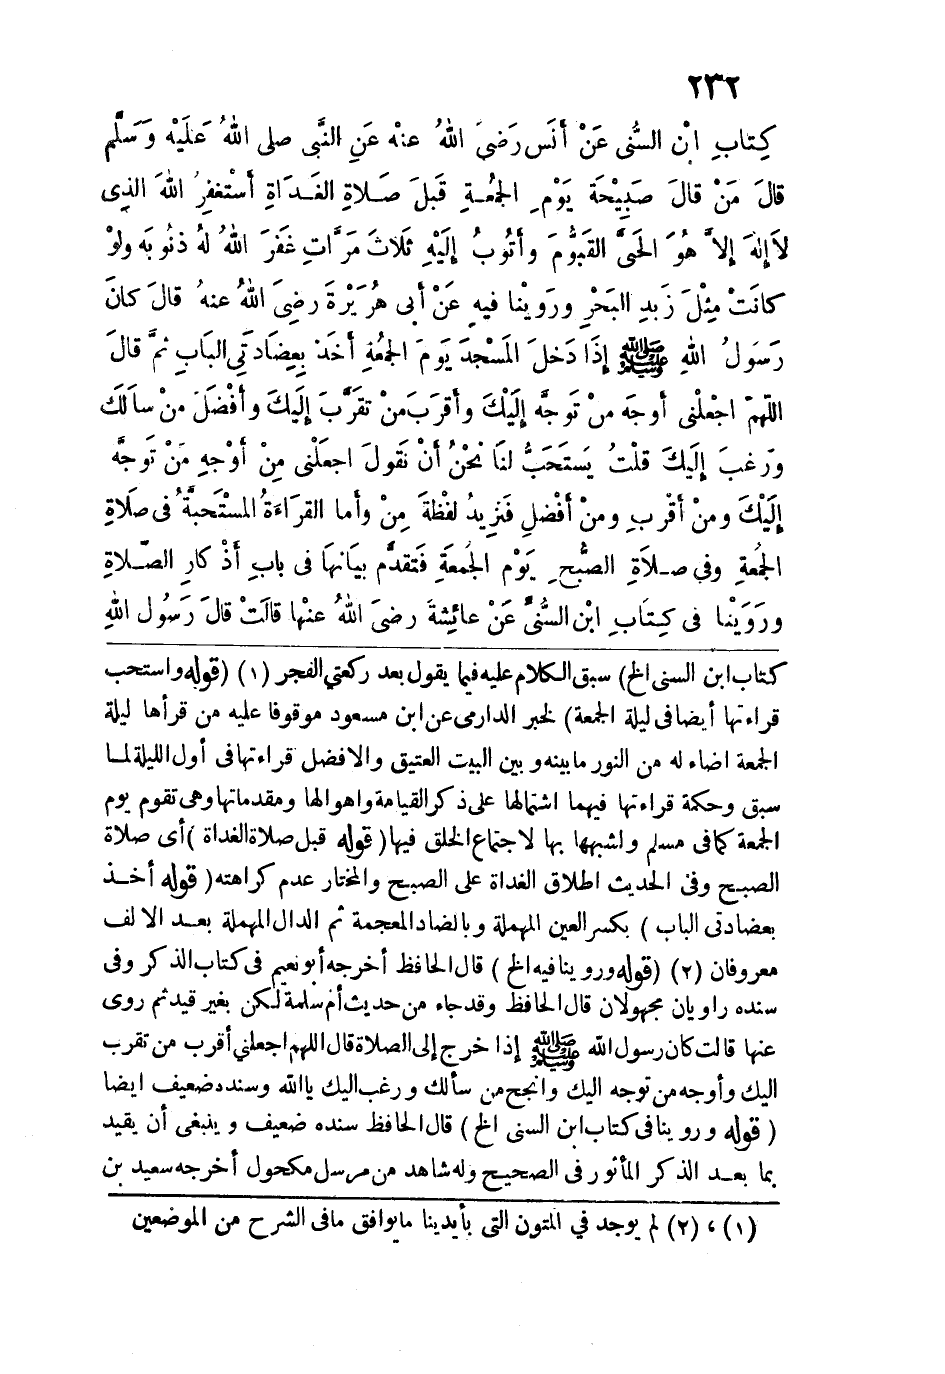 ٢٣٢
كِتابِ ابْن السُّنى عَنْ أنَس رَضىَ اللهُ عنهْ عَنِ النَّبى صلى اللهُ عَلَيْه وَسَلَّم
قالَ مَنْ قالَ صَبِيْحَةَ يَوْمِ الجُمُعةِ قَبلَ صَلاةِ الغَدَاةِ أسْتَغفِرُ اللهَ الذِى
لاَإِلٰهَ إلاَّ هُوَ الحَىَّ القَيُّومَ وأتُوبُ إلَيْهِ ثَلاثَ مَرَّاتٍ غَفَرَ اللهُ لهُ ذنُوبَه ولوْ
كانَتْ مِثْلَ زَبدِ البَحْرِ ورَوينا فيهِ عَنْ أبى هُرَيْرةَ رضِىَ اللهُ عنهُ قالَ كانَ
رَسَولُ اللهِ ﷺ إذَا دَخلَ المَسْجدَ يَومَ الجُمُعةِ أخَذَ بِعِضَادَتَي البَابِ ثمَّ قالَ
اللّهمّ اجْعلْنى أوجَه منْ تَوجَّه إلَيْكَ وأقرَبَ منْ تقرَّبَ إلَيكَ وأفْضلَ منْ سألكَ
ورَغبَ إلَيكَ قلتُ يَستَحَبُّ لنَا نحْنُ أنْ نَقولَ اجعَلْنى مِنْ أوْجهِ مَنْ تَوجَّه
إلَيْكَ ومنْ أقْربِ ومنْ أفْضلِ فنَزيدُ لفْظةَ مِنْ وأما القرَاءَةُ المسْتَحبَّةُ فى صلَاةِ
الجُمعةِ وفي صلاَةِ الصُّبحِ يَوْمِ الجُمعةِ فَتقدَّم بيَانهَا فى بابِ أذْكارِ الصّلاةِ
ورَوَيْنا فى كِتَابِ ابْنِ السُّنىَّ عَنْ عائِشةَ رضىَ اللهُ عنْها قالَتْ قالَ رَسُول اللهِ
كتاب ابن السنى الخ) سبق الكلام عليه فيما يقول بعد ركعتي الفجر (١) (قوله واستحب
قراءتها أيضا فى ليلة الجمعة) لخبر الدارمى عن ابن مسعود موقوفا عليه من قرأها ليلة
الجمعة اضاء له من النور ما بينه وبين البيت العتيق والافضل قراءتها فى أول الليلة لما
سبق وحكمة قراءتها فيهما اشتمالها على ذكر القيامة واهوالها ومقدماتها وهى تقوم يوم
الجمعة كما فى مسلم ولشبهها بها لاجتماع الخلق فيها (قوله قبل صلاة الغداة) أى صلاة
الصبح وفى الحديث اطلاق الغداة على الصبح والمختار عدم كراهته (قوله أخذ
بعضادتى الباب) بكسر العين المهملة وبالضاد المعجمة ثم الدال المهملة بعد الالف
معروفان (٢) (قوله وروينا فيه الخ) قال الحافظ أخرجه أبو نعيم فى كتاب الذكر وفى
سنده راويان مجهولان قال الحافظ وقد جاء من حديث أم سلمة لكن بغير قيد ثم روى
عنها قالت كان رسول الله ﷺ إذا خرج إلى الصلاة قال اللهم اجعلني أقرب من تقرب
اليك وأوجه من توجه اليك وانجح من سألك ورغب اليك يا الله وسنده ضعيف ايضا
(قوله وروينا فى كتاب ابن السنى الخ) قال الحافظ سنده ضعيف وينبغى أن يقيد
بما بعد الذكر المأثور فى الصحيح وله شاهد من مرسل مكحول أخرجه سعيد بن
(١) ، (٢) لم يوجد في المتون التى بأيدينا ما يوافق ما فى الشرح من الموضعين